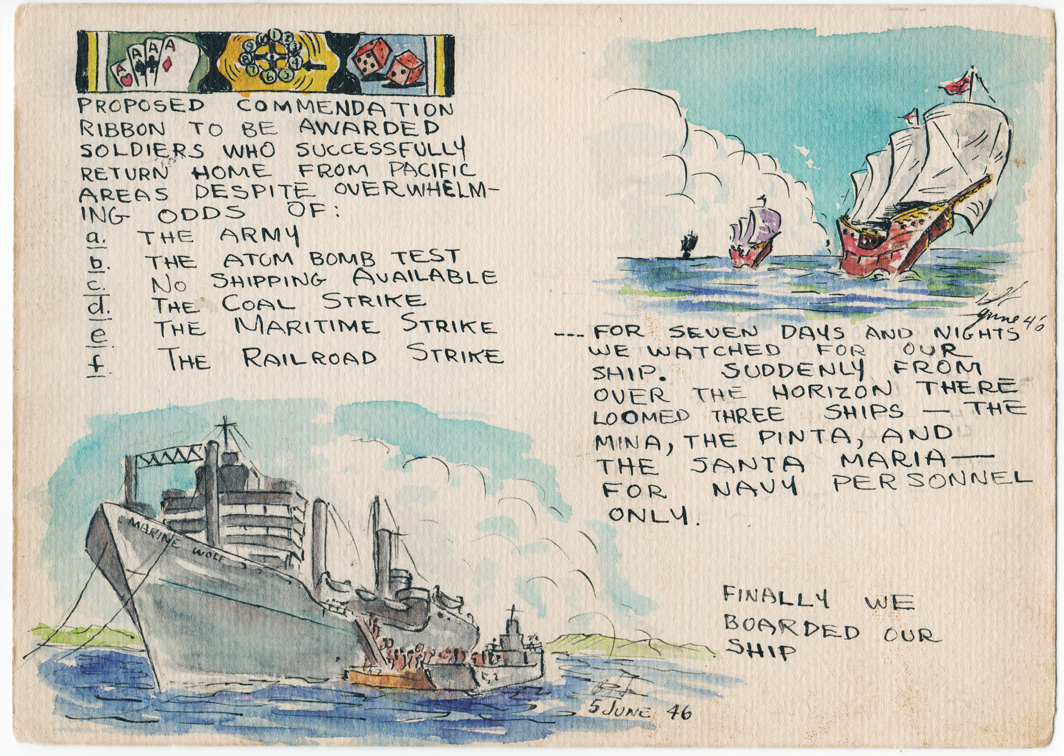 PROPOSED COMMENDATION
RIBBON TO BE AWARDED
SOLDIERS WHO SUCCESSFULLY
RETURN HOME FROM PACIFIC
AREAS DESPITE OVERWHELM-
ING ODDS OF:
a. THE ARMY
b. THE ATOM BOMB TEST
c. NO SHIPPING AVAILABLE
d. THE COAL STRIKE
e. THE MARITIME STRIKE
f. THE RAILROAD STRIKE
June 46
--- FOR SEVEN DAYS AND NIGHTS
WE WATCHED FOR OUR
SHIP. SUDDENLY FROM
OVER THE HORIZON THERE
LOOMED THREE SHIPS — THE
MINA, THE PINTA, AND
THE SANTA MARIA—
FOR NAVY PERSONNEL
ONLY.
MARINE WOLF
FINALLY WE
BOARDED OUR
SHIP
5 JUNE 46